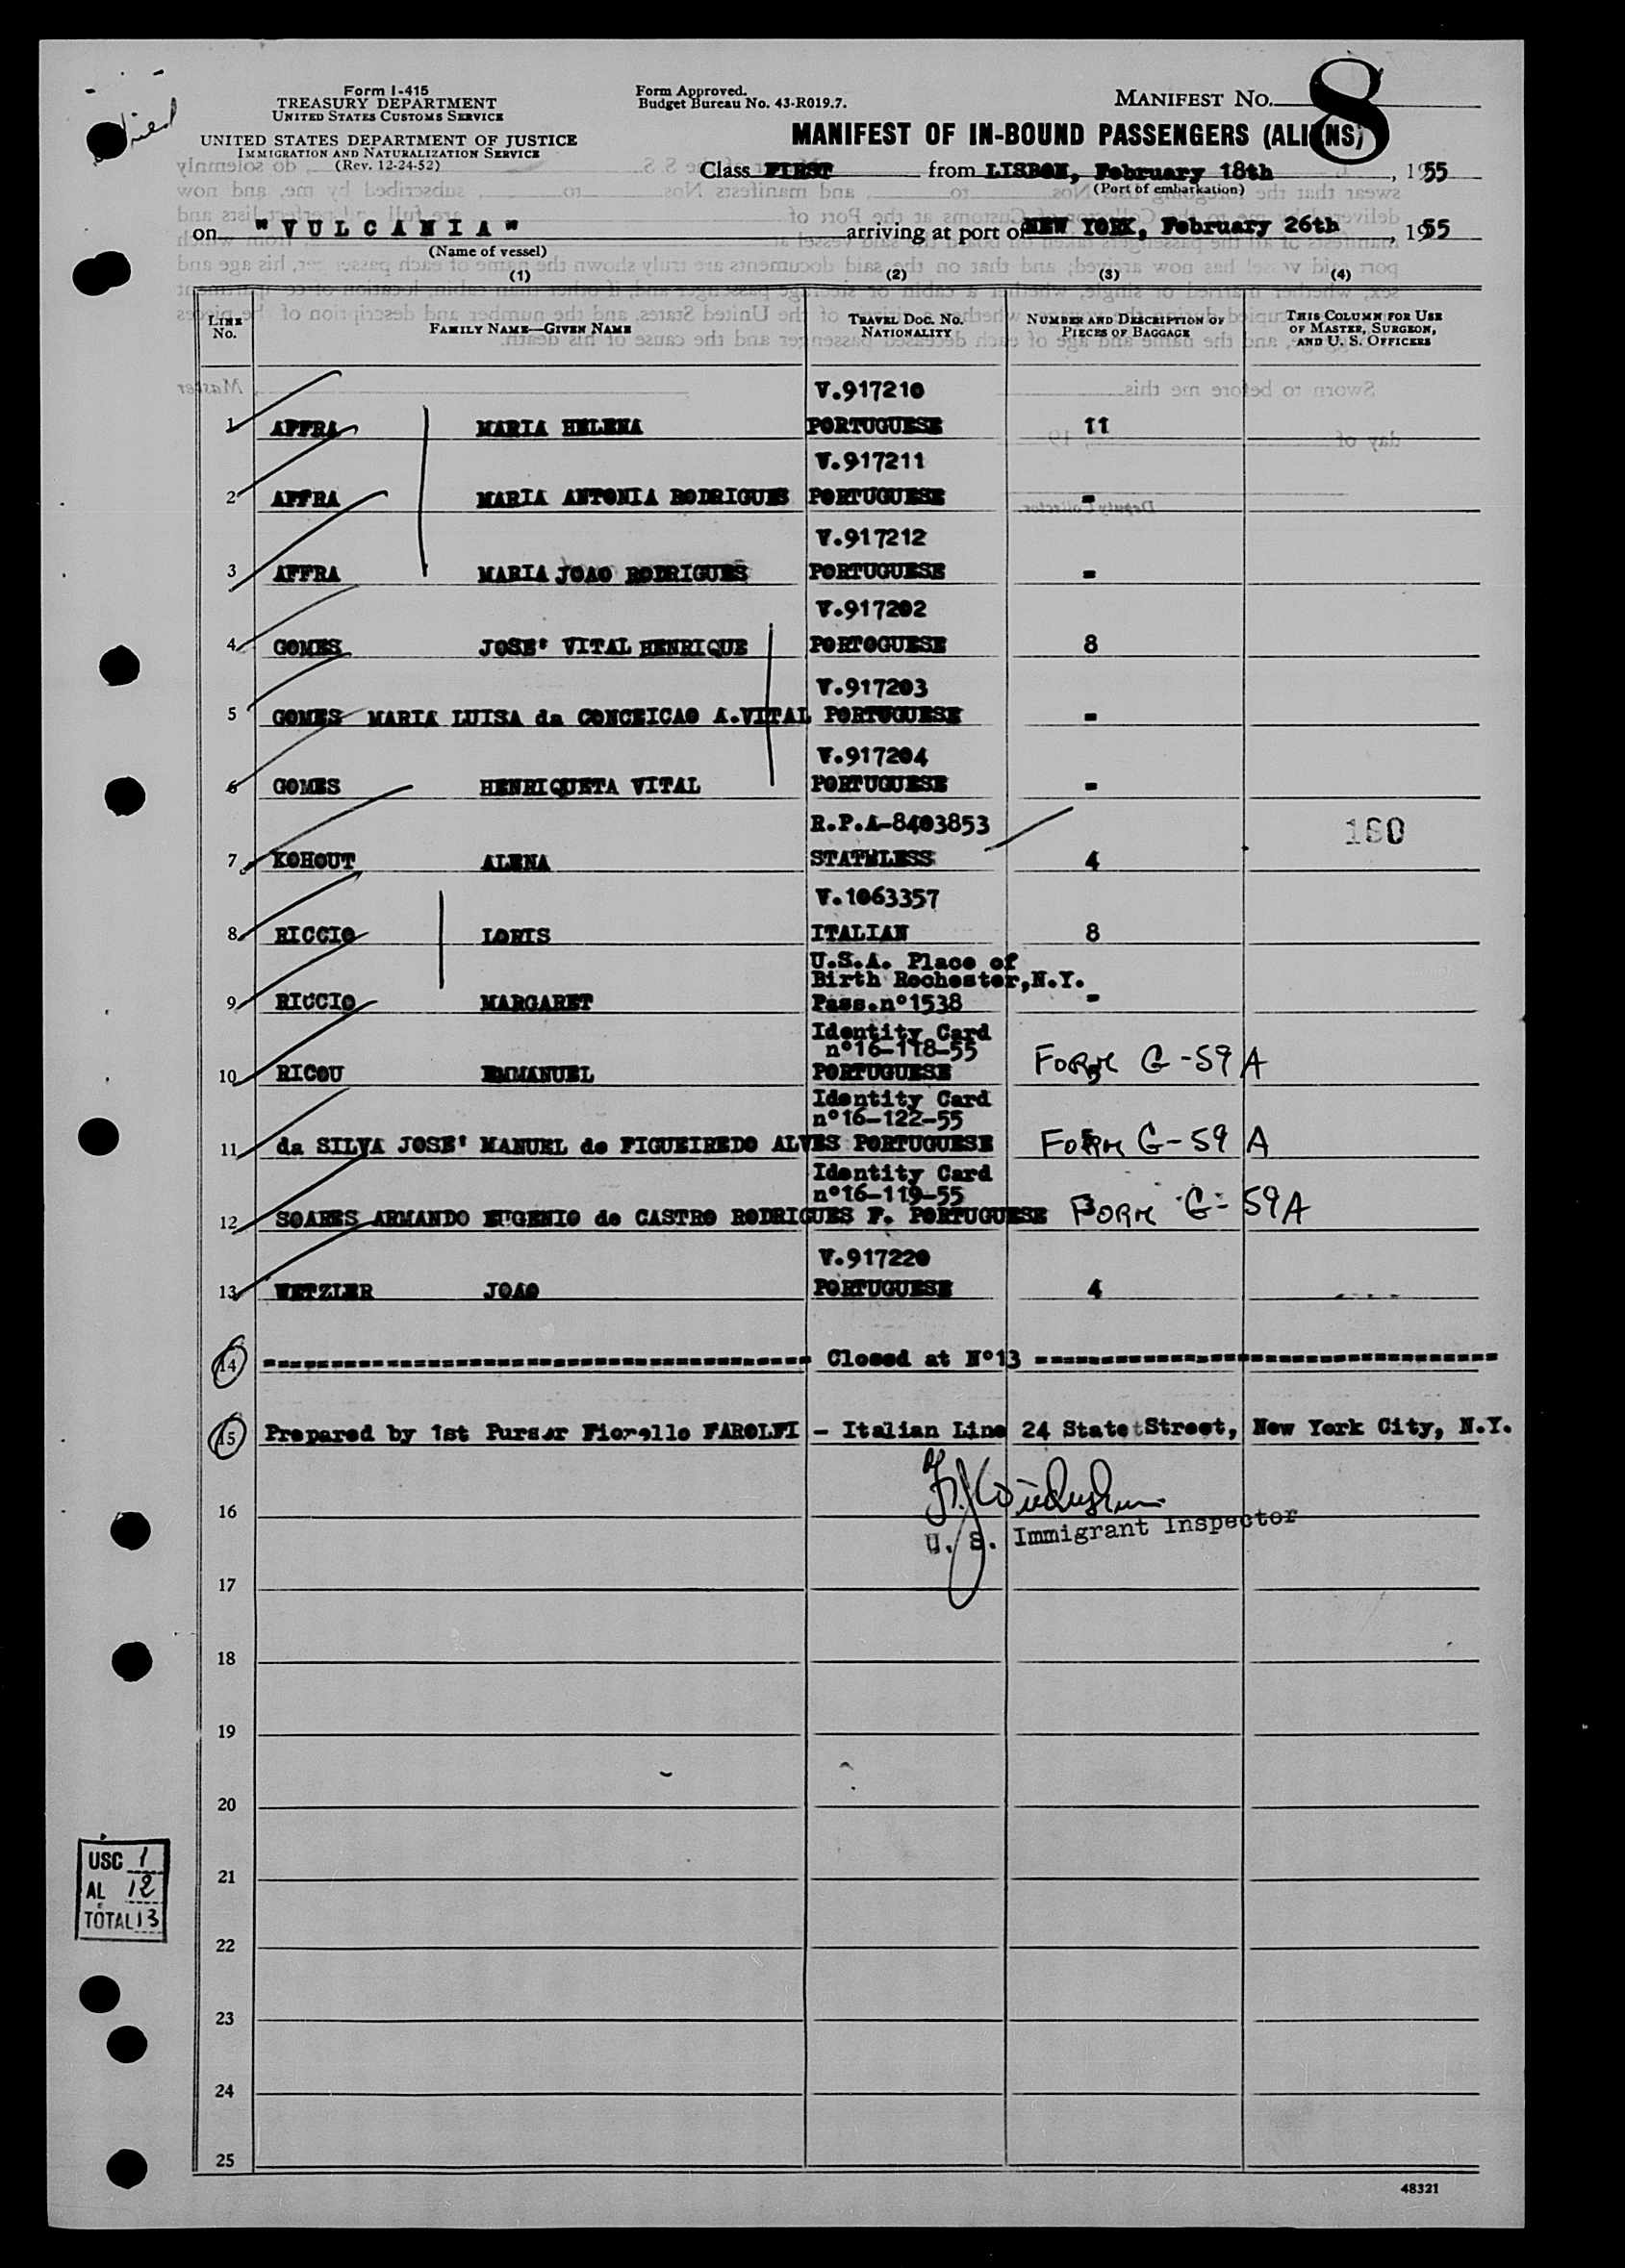 Form I-415
TREASURY DEPARTMENT
UNITED STATES CUSTOMS SERVICE
UNITED STATES DEPARTMENT OF JUSTICE
IMMIGRATION AND NATURALIZATION SERVICE
(Rev. 12-24-52)
Form Approved.
Budget Bureau No. 43-R019.7.
MANIFEST NO. 8
MANIFEST OF IN-BOUND PASSENGERS (ALIENS)
Class FIRST from LISBON, February 18th, 1955
(Port of embarkation)
on "VULCANIA" arriving at port of NEW YORK, February 26th, 1955
(Name of vessel)
(1) (2) (3) (4)
LINE No. FAMILY NAME—GIVEN NAME TRAVEL DOC. NO. NATIONALITY NUMBER AND DESCRIPTION OF PIECES OF BAGGAGE THIS COLUMN FOR USE OF MASTER, SURGEON, AND U. S. OFFICERS
V.917210
1 AFFRA MARIA HELENA PORTUGUESE 11
V.917211
2 AFFRA MARIA ANTONIA RODRIGUES PORTUGUESE -
V.917212
3 AFFRA MARIA JOAO RODRIGUES PORTUGUESE -
V.917202
4 GOMES JOSE' VITAL HENRIQUE PORTOGUESE 8
V.917203
5 GOMES MARIA LUISA da CONCEICAO A.VITAL PORTUGUESE -
V.917204
6 GOMES HENRIQUETA VITAL PORTUGUESE -
R.P.A-8403853
180
7 KOHOUT ALENA STATELESS 4
V.1063357
8 RICCIO LORIS ITALIAN 8
U.S.A. Place of
Birth Rochester,N.Y.
9 RICCIO MARGARET Pass.n°1538 -
Identity Card
n°16-118-55
10 RICOU EMMANUEL PORTUGUESE FORM G-59A
Identity Card
n°16-122-55
11 da SILVA JOSE' MANUEL de FIGUEIREDO ALVES PORTUGUESE FORM G-59A
Identity Card
n°16-119-55
12 SOARES ARMANDO EUGENIO de CASTRO RODRIGUES F. PORTUGUESE FORM G-59A
V.917220
13 WETZLER JOAO PORTUGUESE 4
14 Closed at N°13
15 Prepared by 1st Purser Fiorello FAROLFI - Italian Line 24 State Street, New York City, N.Y.
16
U. S. Immigrant Inspector
17
18
19
20
USC 1
AL 12
TOTAL 13
21
22
23
24
25
48321